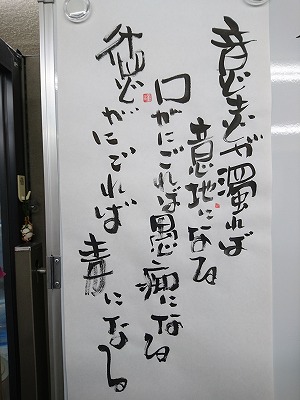 意志が濁れば
意地になる
口がにごれば愚痴になる
徳がにごれば毒になる